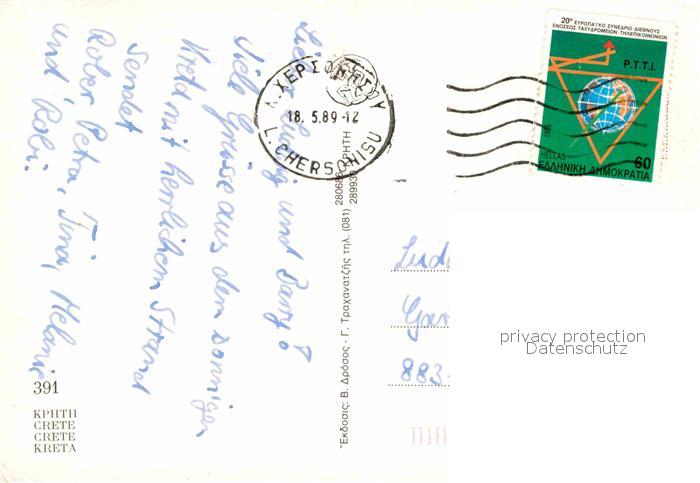 Liebe Ludwig und Parry!
Viele Grüsse aus dem sonnigen
Kreta mit herrlichem Strand
Sendet
Robert Petra, Tina, Melanie
und Robi.
391
ΚΡΗΤΗ
CRETE
CRETE
KRETA
Λ. ΧΕΡΣΟΝΗΣΟΥ
18. 5.89-12
L. CHERSONISU
"Εκδοσις: Β. Δρόσος - Γ. Τραχανατζής τηλ. (081) 280686 ΚΡΗΤΗ
289930
20° ΕΥΡΩΠΑΪΚΟ ΣΥΝΕΔΡΙΟ ΔΙΕΘΝΟΥΣ
ΕΝΩΣΕΩΣ ΤΑΧΥΔΡΟΜΕΙΩΝ-ΤΗΛΕΠΙΚΟΙΝΩΝΙΩΝ
P.T.T.I.
1988
HELLAS
60
ΕΛΛΗΝΙΚΗ ΔΗΜΟΚΡΑΤΙΑ
883
privacy protection
Datenschutz